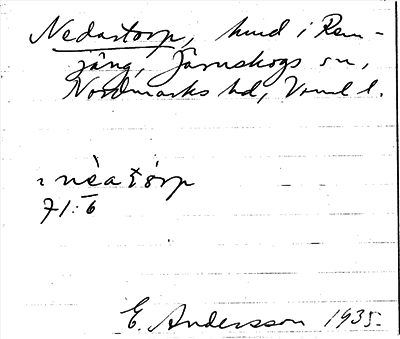 Nedastorp, hmd i Rem-
jäng, Järnskogs sn,
Nordmarks hd, Vrml l.
ı nèa tórp
71: 6
E. Andersson 1935.